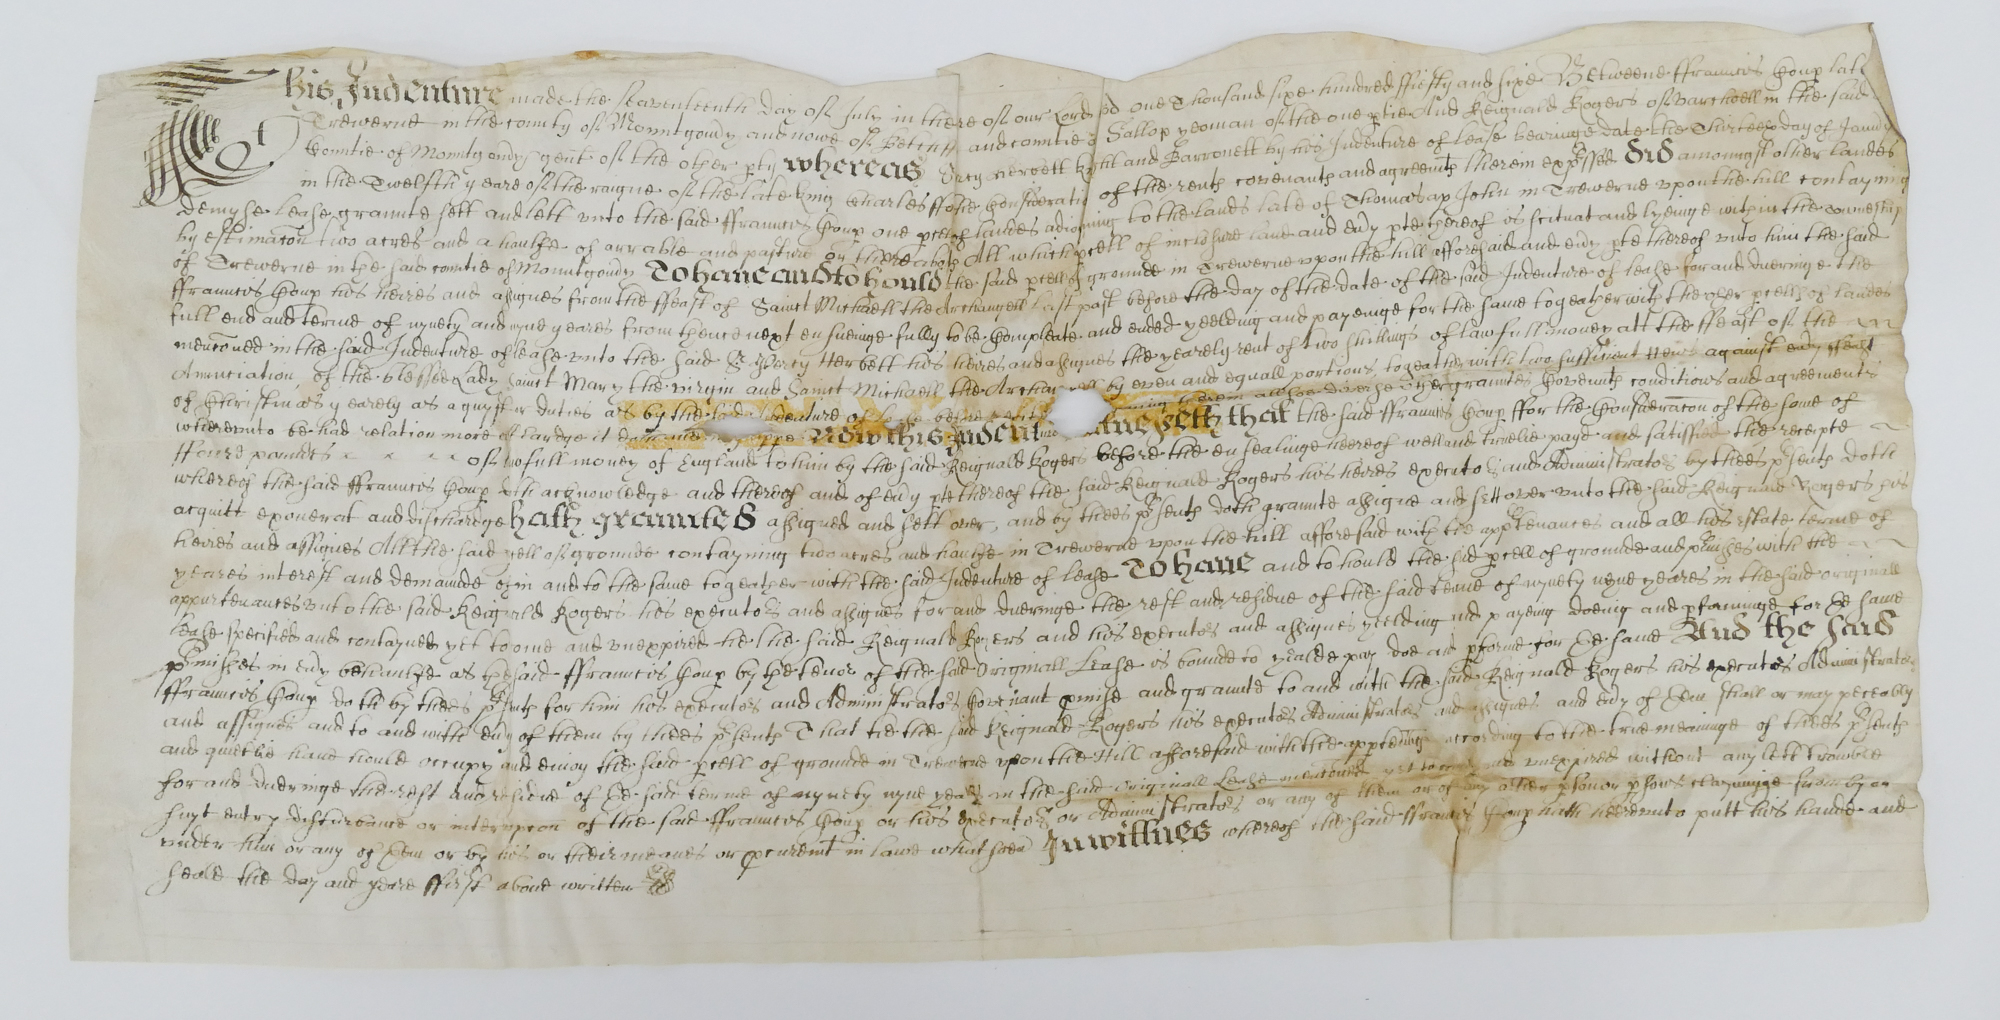 This Indenture made the seaventeenth day of July in the of our Lord one Thousand sixe hundred ffiefty and sixe Betweene ffrauncis Houp late
Trewerne in the county of Mountgomry and nowe of and comtie Sallop yeoman of the one ptie And Reignald Rogers of in the said
Countie of Mountgomry gent of the other pty whereas Percy Herbett and Barronett by his Indenture of lease bearinge date the day of
in the Twelfth yeare of the raigne of the late king Charles ffor the Consideratio of the rents covenants and agreemts therein expssed did amongst other landes
demyse lease graunte sett and lett unto the said ffrauncis Houp one pcell of landes adioyning to the lands late of Thomas ap John in Trewerne upon the hill contayning
by estimacon two acres and a haulfe of arrable and pasture or thereabouts All which pcell of inclosure land and evy pte thereof is scituat and lyeinge within the towneship
of Trewerne in the said comtie of Mountgomry To have and to hould the said pcell of grounde in Trewerne upon the hill afforesaid and evy pte thereof unto him the said
ffrauncis Houp his heires and assignes from the ffeast of Sainct Michaell the Archangell last past before the day of the date of the said Indenture of lease for and dueringe the
full end and terme of nynety and nyne yeares from thence next ensueinge fully to be compleate and ended yeelding and payeinge for the same togeather with the other pcells of landes
mencioned in the said Indenture of lease unto the said Sr Percy Herbett his heires and assignes the yearely rent of two shillings of lawfull money att the ffeast of the
Annuciation of the blessed Lady Sainct Mary the virgin and Sainct Michaell the by even and equall portions togeather with two sufficient Hens against evy ffeast
of Christmas yearely as duties as by the said Indenture of lease other grauntes Covennts conditions and agreements
whereunto being had relation more att lardge it Now this Indent that the said ffrauncis Houp ffor the Consideracon of the some of
ffoure poundes of lawfull money of England to him by the said Reignald Rogers before the ensealinge heereof well and truelie payd and satissfied the receipte
whereof the said ffrauncis Houp doth acknowledge and thereof and of evy pte thereof the said Reignald Rogers his heires executors and Administrators by theis psents doth
acquitt exonerat and dischardge hath graunted assigned and sett over, and by theis psents doth graunte assigne and sett over unto the said Reignald Rogers his
heires and assignes All the said pcell of grounde contayning two acres and haulfe in Trewerne upon the hill afforesaid with the apptenances and all his estate terme of
yeares interest and demaunde of in and to the same togeather with the said Indenture of lease To have and to hould the said pcell of grounde and pmisses with the
appurtenances unto the said Reignald Rogers his executors and assignes for and dueringe the rest and residue of the said terme of nynety nyne yeares in the said originall
lease specified and contayned yet to come and unexpired he the said Reignald Rogers and his executors and assignes yeelding and payeing doeing and pforminge for the same
pmisses in evy behaulfe as the said ffrauncis Houp by the tenor of the said Originall Lease is bounde to yealde pay doe and pforme for the same And the said
ffrauncis Houp doth by theis psents for him his executors and Administrators Covenant pmise and graunte to and with the said Reignald Rogers his executors Administrators
and assignes and to and with evy of them by theis psents That he the said Reignald Rogers his executors Administrators and assignes and evy of them shall or may peceably
and quietlie have hould occupy and enioy the said pcell of grounde in Trewerne upon the Hill afforesaid with the according to the true meaninge of theis psents
for and dueringe the rest and residue of the said terme of nynety nyne yeares in the said originall Lease mentioned yet to come and unexpired without any lett trouble
suyt entry disturbance or interupcon of the said ffrauncis Houp or his executors or Administrators or any of them or of any other pson or psons claymynge from by or
under him or any of them or by his or their meanes or pcuremt in lawe whatsoever In wittnes whereof the said ffrauncis Houp hath heereunto putt his hande and
seale the day and yeare ffirst above written